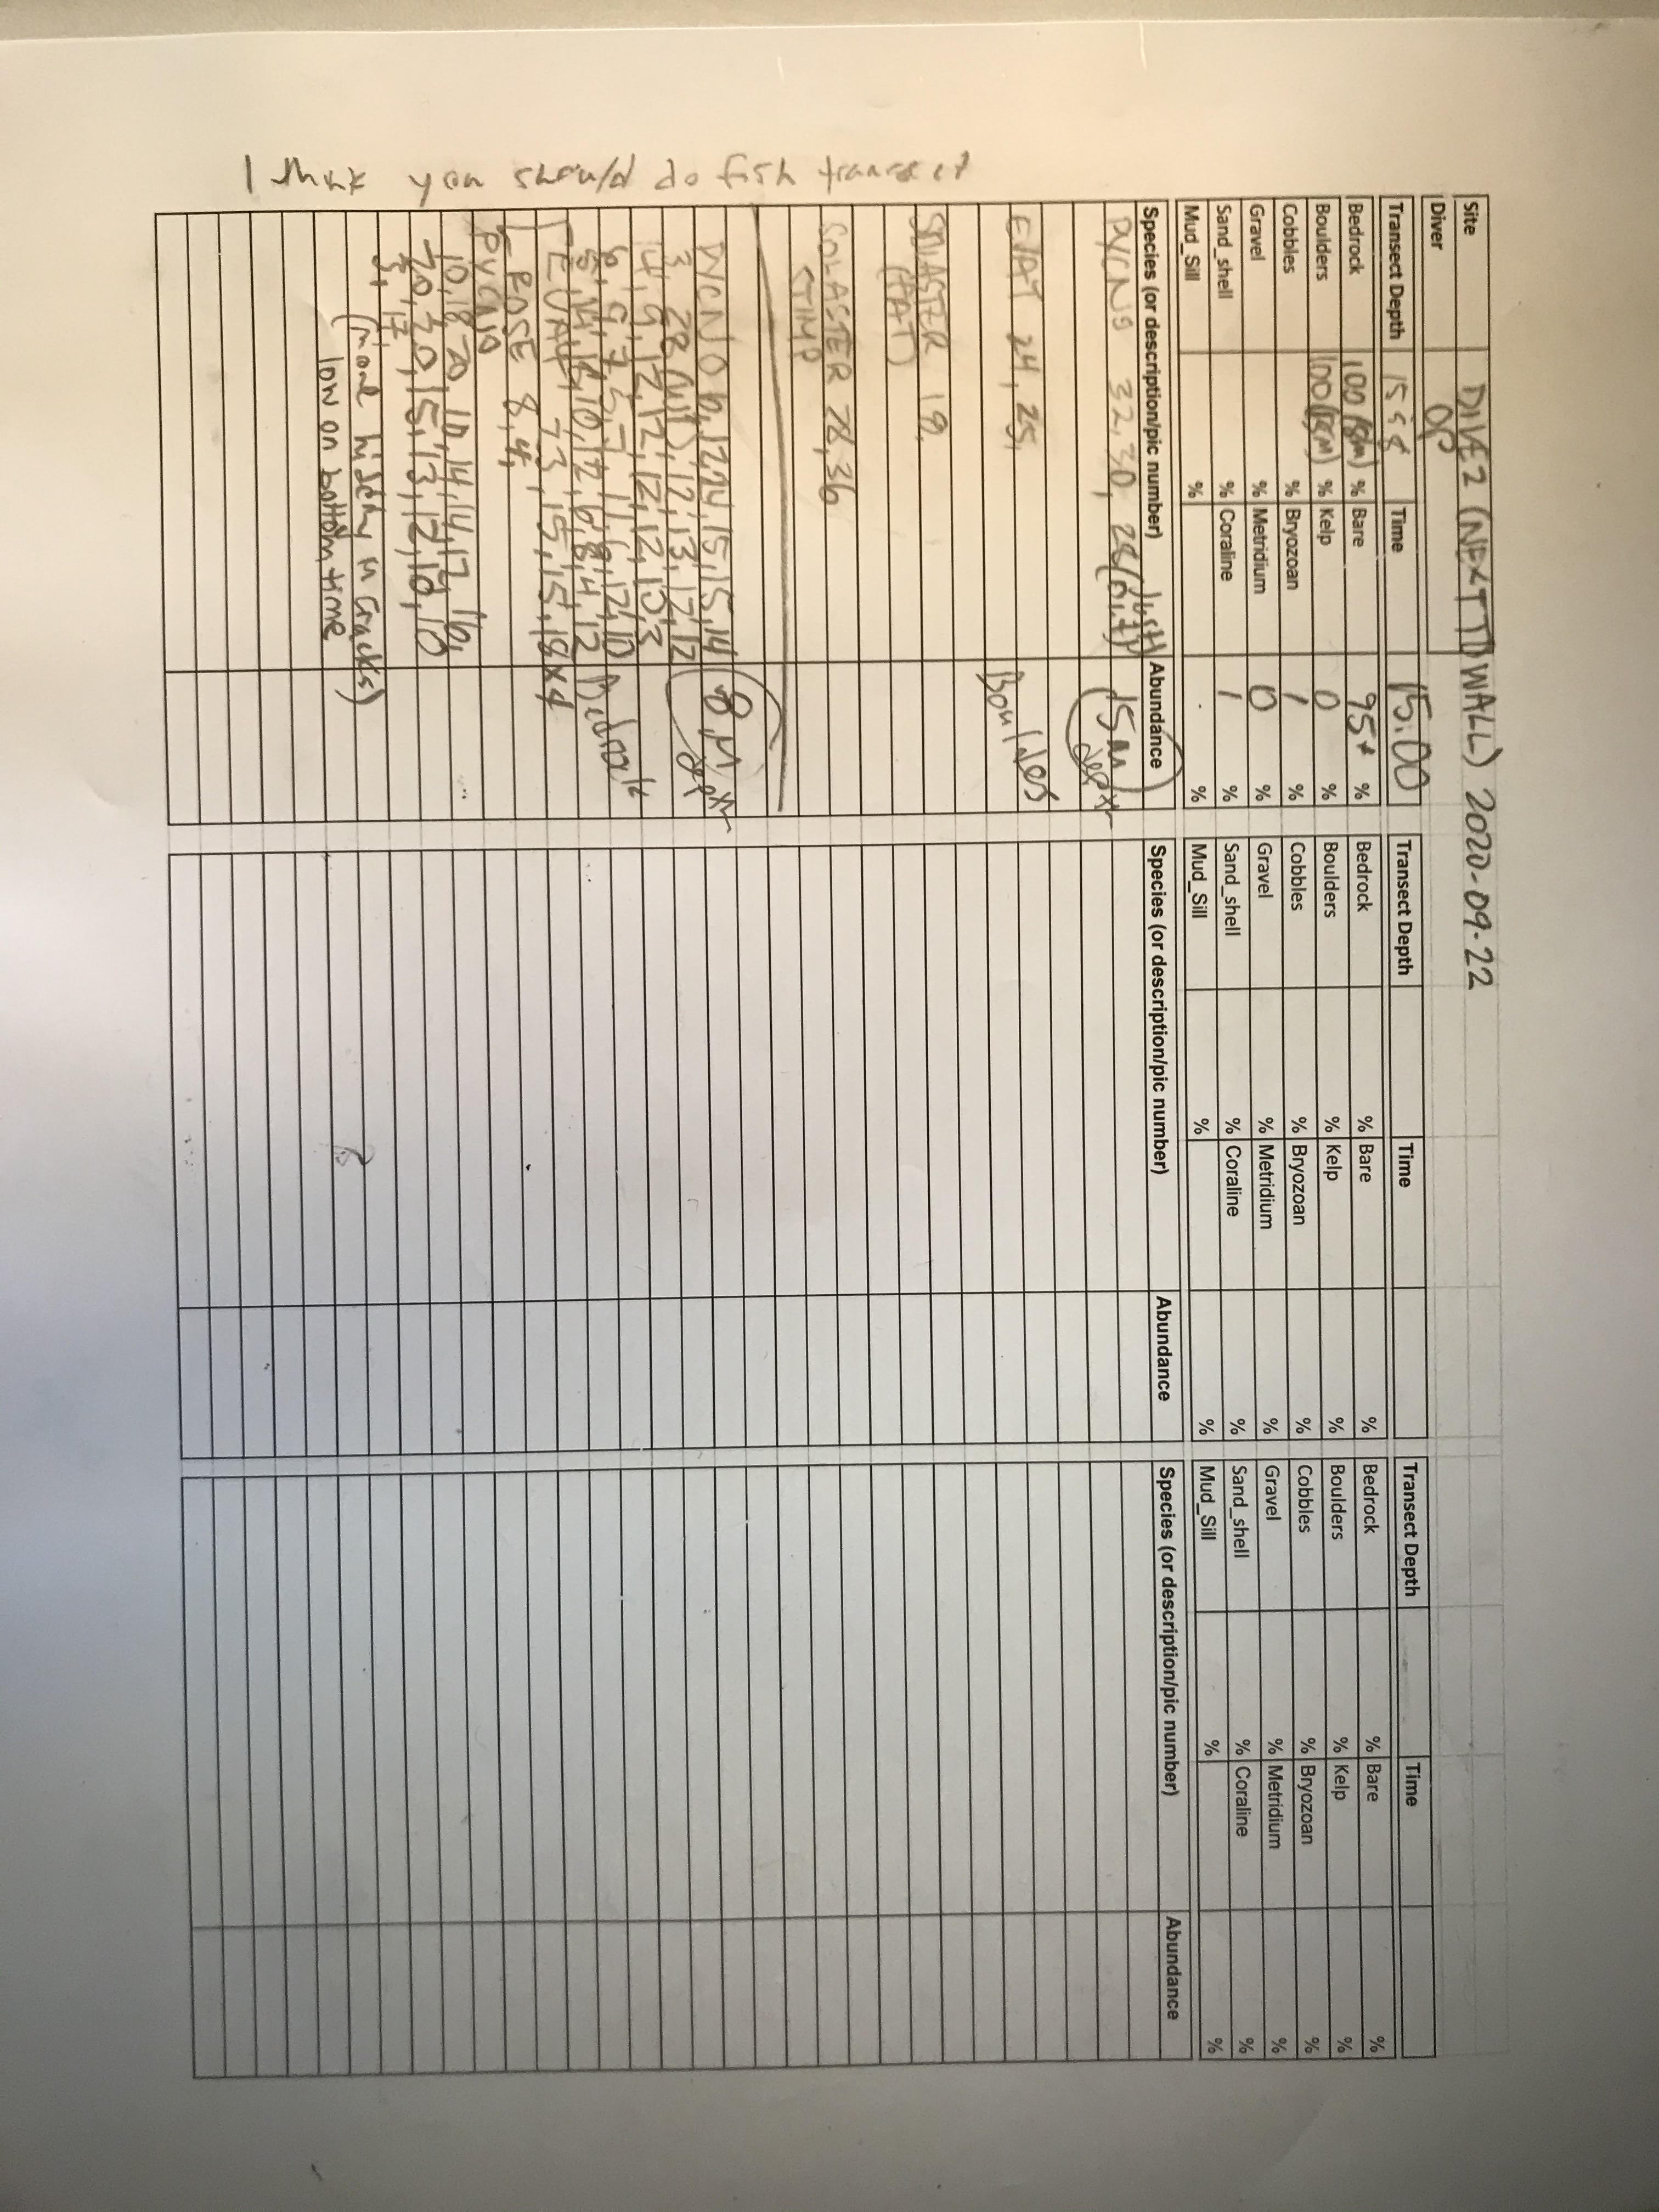 Site DIVE 2 (NEXT TO WALL) 2020-09-22
Diver OP
Transect Depth 15 & 8 Time 15:00
Bedrock 100 (8m) % Bare 95+ %
Boulders 100 (15m) % Kelp 0 %
Cobbles % Bryozoan 1 %
Gravel % Metridium 0 %
Sand_shell % Coraline 1 %
Mud_Sill % %
Species (or description/pic number) Abundance
PYCNO 32, 30, 28 (just out) 15m depth
EVAT 24, 25, Boulders
SOLASTER 19,
SOLASTER 28, 36
STIMP
PYCNO 6, 12 24, 15, 15, 14 8m depth
3 28 12, 13, 12, 12
14, 9, 12, 12, 12, 12, 13, 3
6, 9, 7, 5, 7, 11, 9, 12, 10
10, 12, 6, 8, 4, 12 Bedrock
73, 15, 15, 18 x 4
ROSE 8, 4,
PYCNO
10, 18 20, 10, 14, 14, 12, 16,
20, 30, 15, 13, 12, 10, 10
3, 17
(more hiding in cracks)
low on bottom time
I think you should do fish transect
Transect Depth Time
Bedrock % Bare %
Boulders % Kelp %
Cobbles % Bryozoan %
Gravel % Metridium %
Sand_shell % Coraline %
Mud_Sill % %
Species (or description/pic number) Abundance
Transect Depth Time
Bedrock % Bare %
Boulders % Kelp %
Cobbles % Bryozoan %
Gravel % Metridium %
Sand_shell % Coraline %
Mud_Sill % %
Species (or description/pic number) Abundance